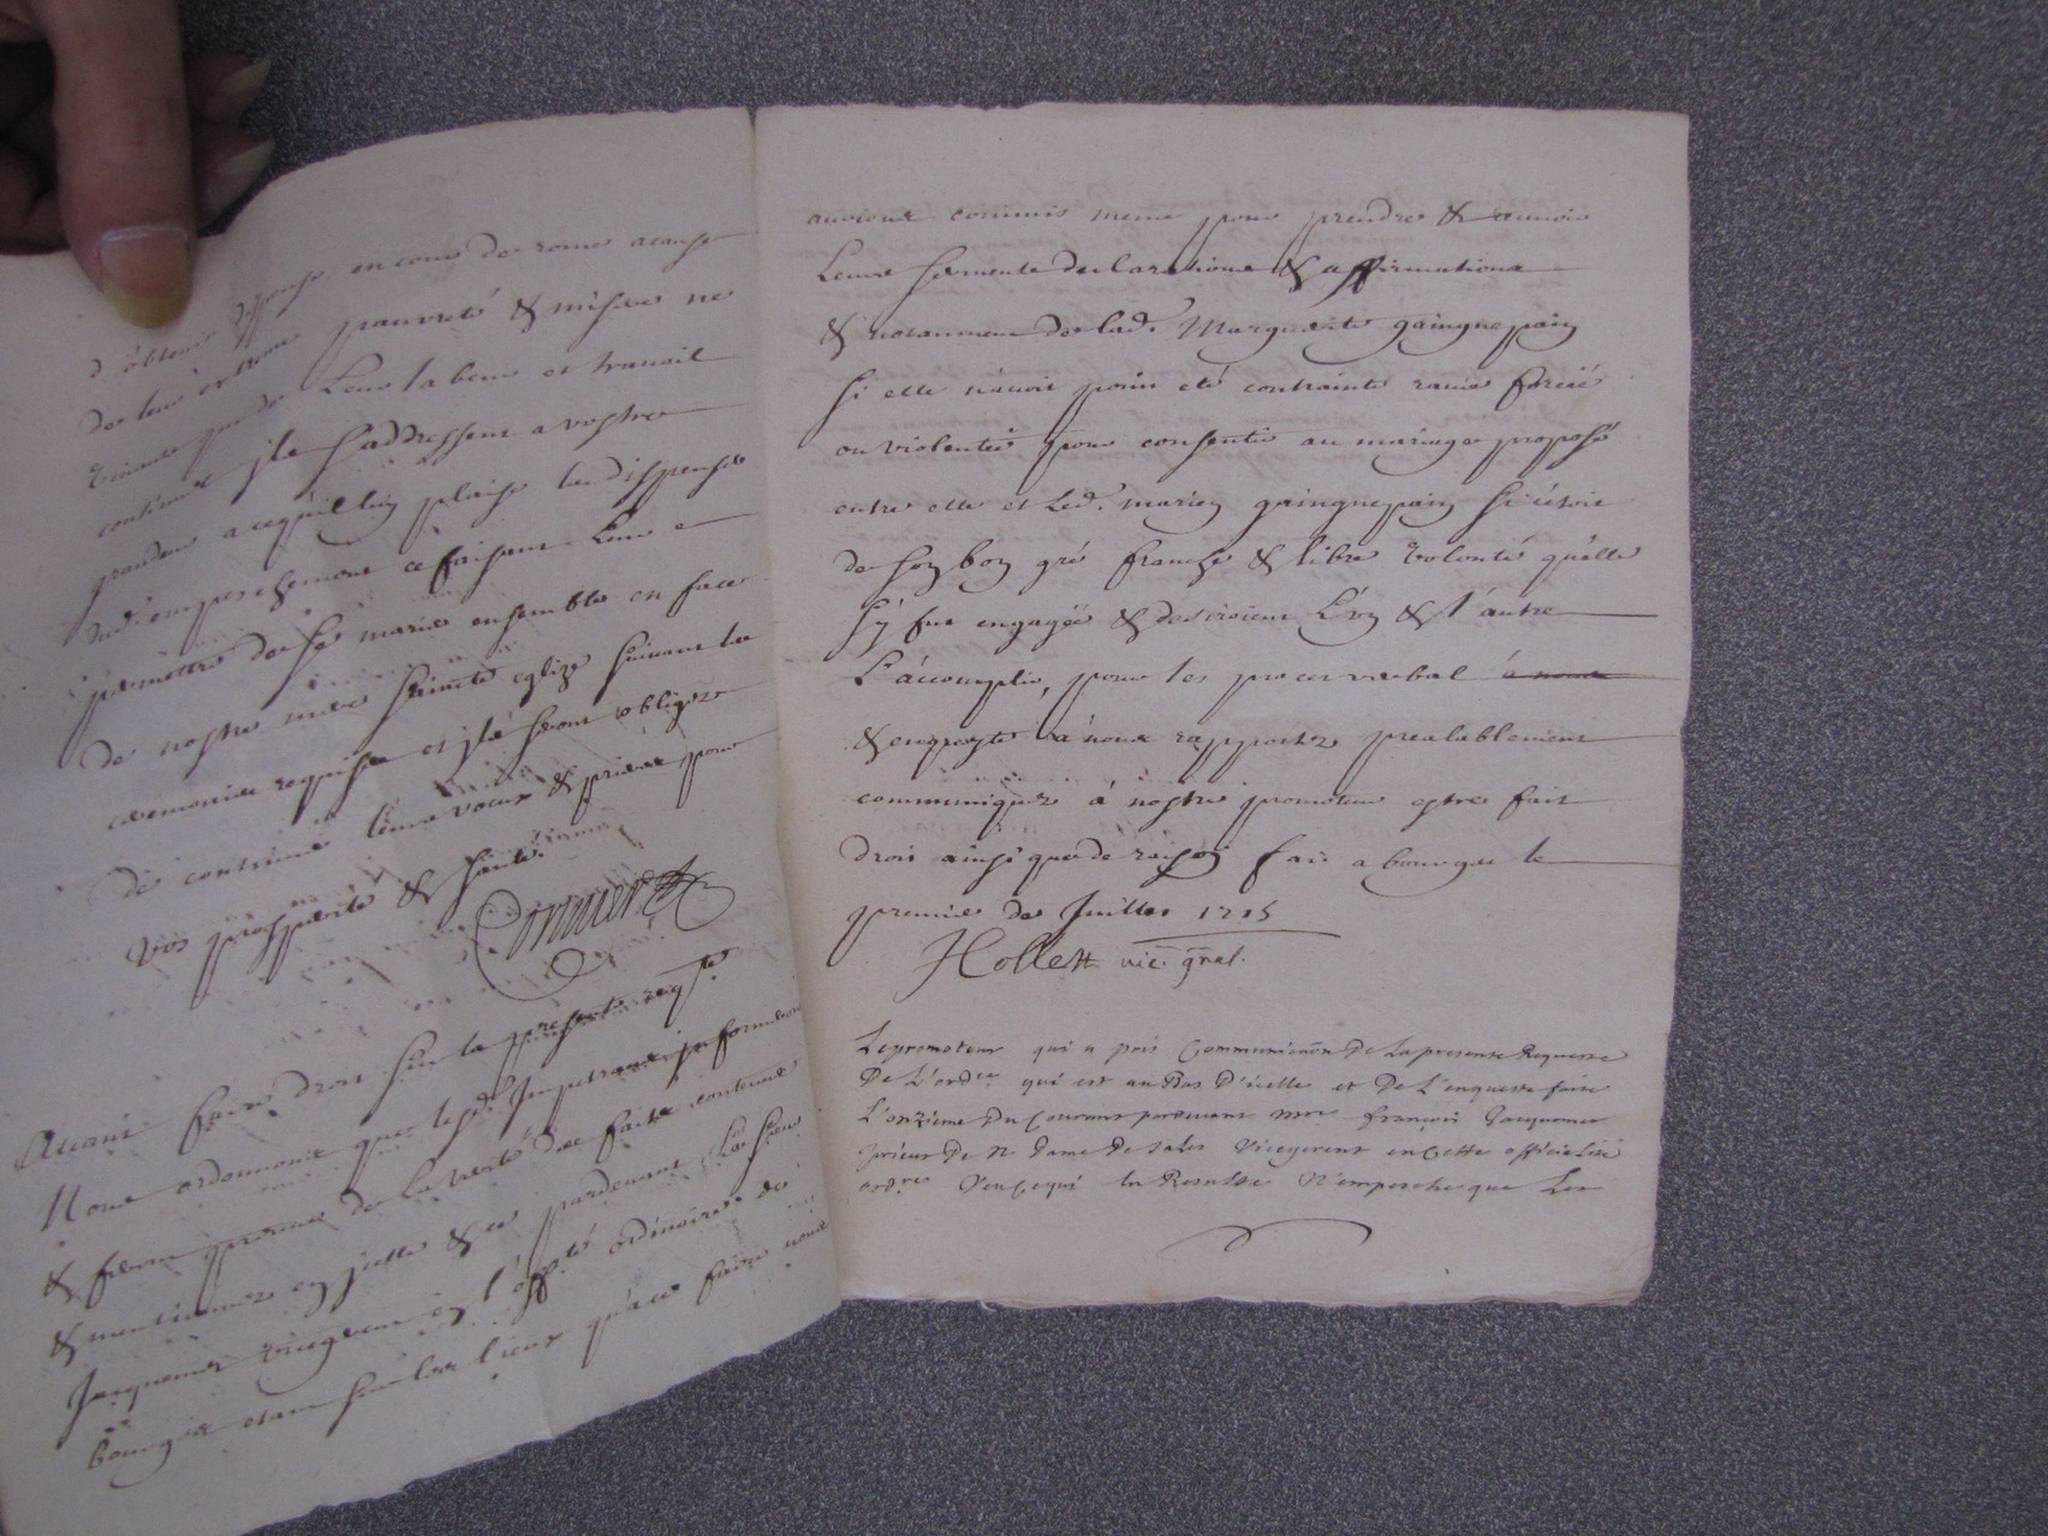 d'obtenir dispense en cour de rome a cause
de leur extreme pauvreté & misere ne
vivants que de Leur labeur et travail
continuel jls s'addressent a vostre
grandeur a ce qu'il luy plaise les dispenser
dud. empeschement ce faisant Leur
permettre de se marier ensemble en face
de nostre mere saincte eglize suivant les
ceremonies requises et jls seront obligez
de continuer leurs vœux & prieres pour
vos prosperité & santé.
Avant faire droit sur la presente reqte.
Nous ordonnons que lesd. Jmpetrans jnformeront
& feront preuve de la verité des faits contenus
& mentionnez en jcelle & ce pardevant Le sieur
Jacquemet vicegerent en l'offté. ordinaire de
bourges estant sur les lieux qu'a ce faire nous
avions commis mesme pour prendre & avoir
Leurs serments declarations & affirmations
& notamment de lad. Marguerite gaingnepain
si elle n'avoit point eté contrainte ravie forcée
ou violentée pour consentir au mariage proposé
entre elle et Led. marien gaingnepain si c'etoit
de son bon gré franche & libre volonté qu'elle
s'y fut engagée & desiroient L'un & l'autre
L'accomplir, pour les proces verbal
& enqueste a nous rapportez prealablement
communiquez á nostre promoteur estre fait
droit ainsi que de raison fait a bourges le
premier de Juillet 1715
Hollett vic. gnal.
Le promoteur qui a pris Communicaon De La presente Requeste
De L'ordce qui est au Bas D'icelle et De L'enqueste faite
L'onzieme Du Courant pardevant mre françois Jacquemet
prieur De N Dame De sales vicegerent en Cette officialité
ordre Veu Ce qui en Resulte N'empesche que Les